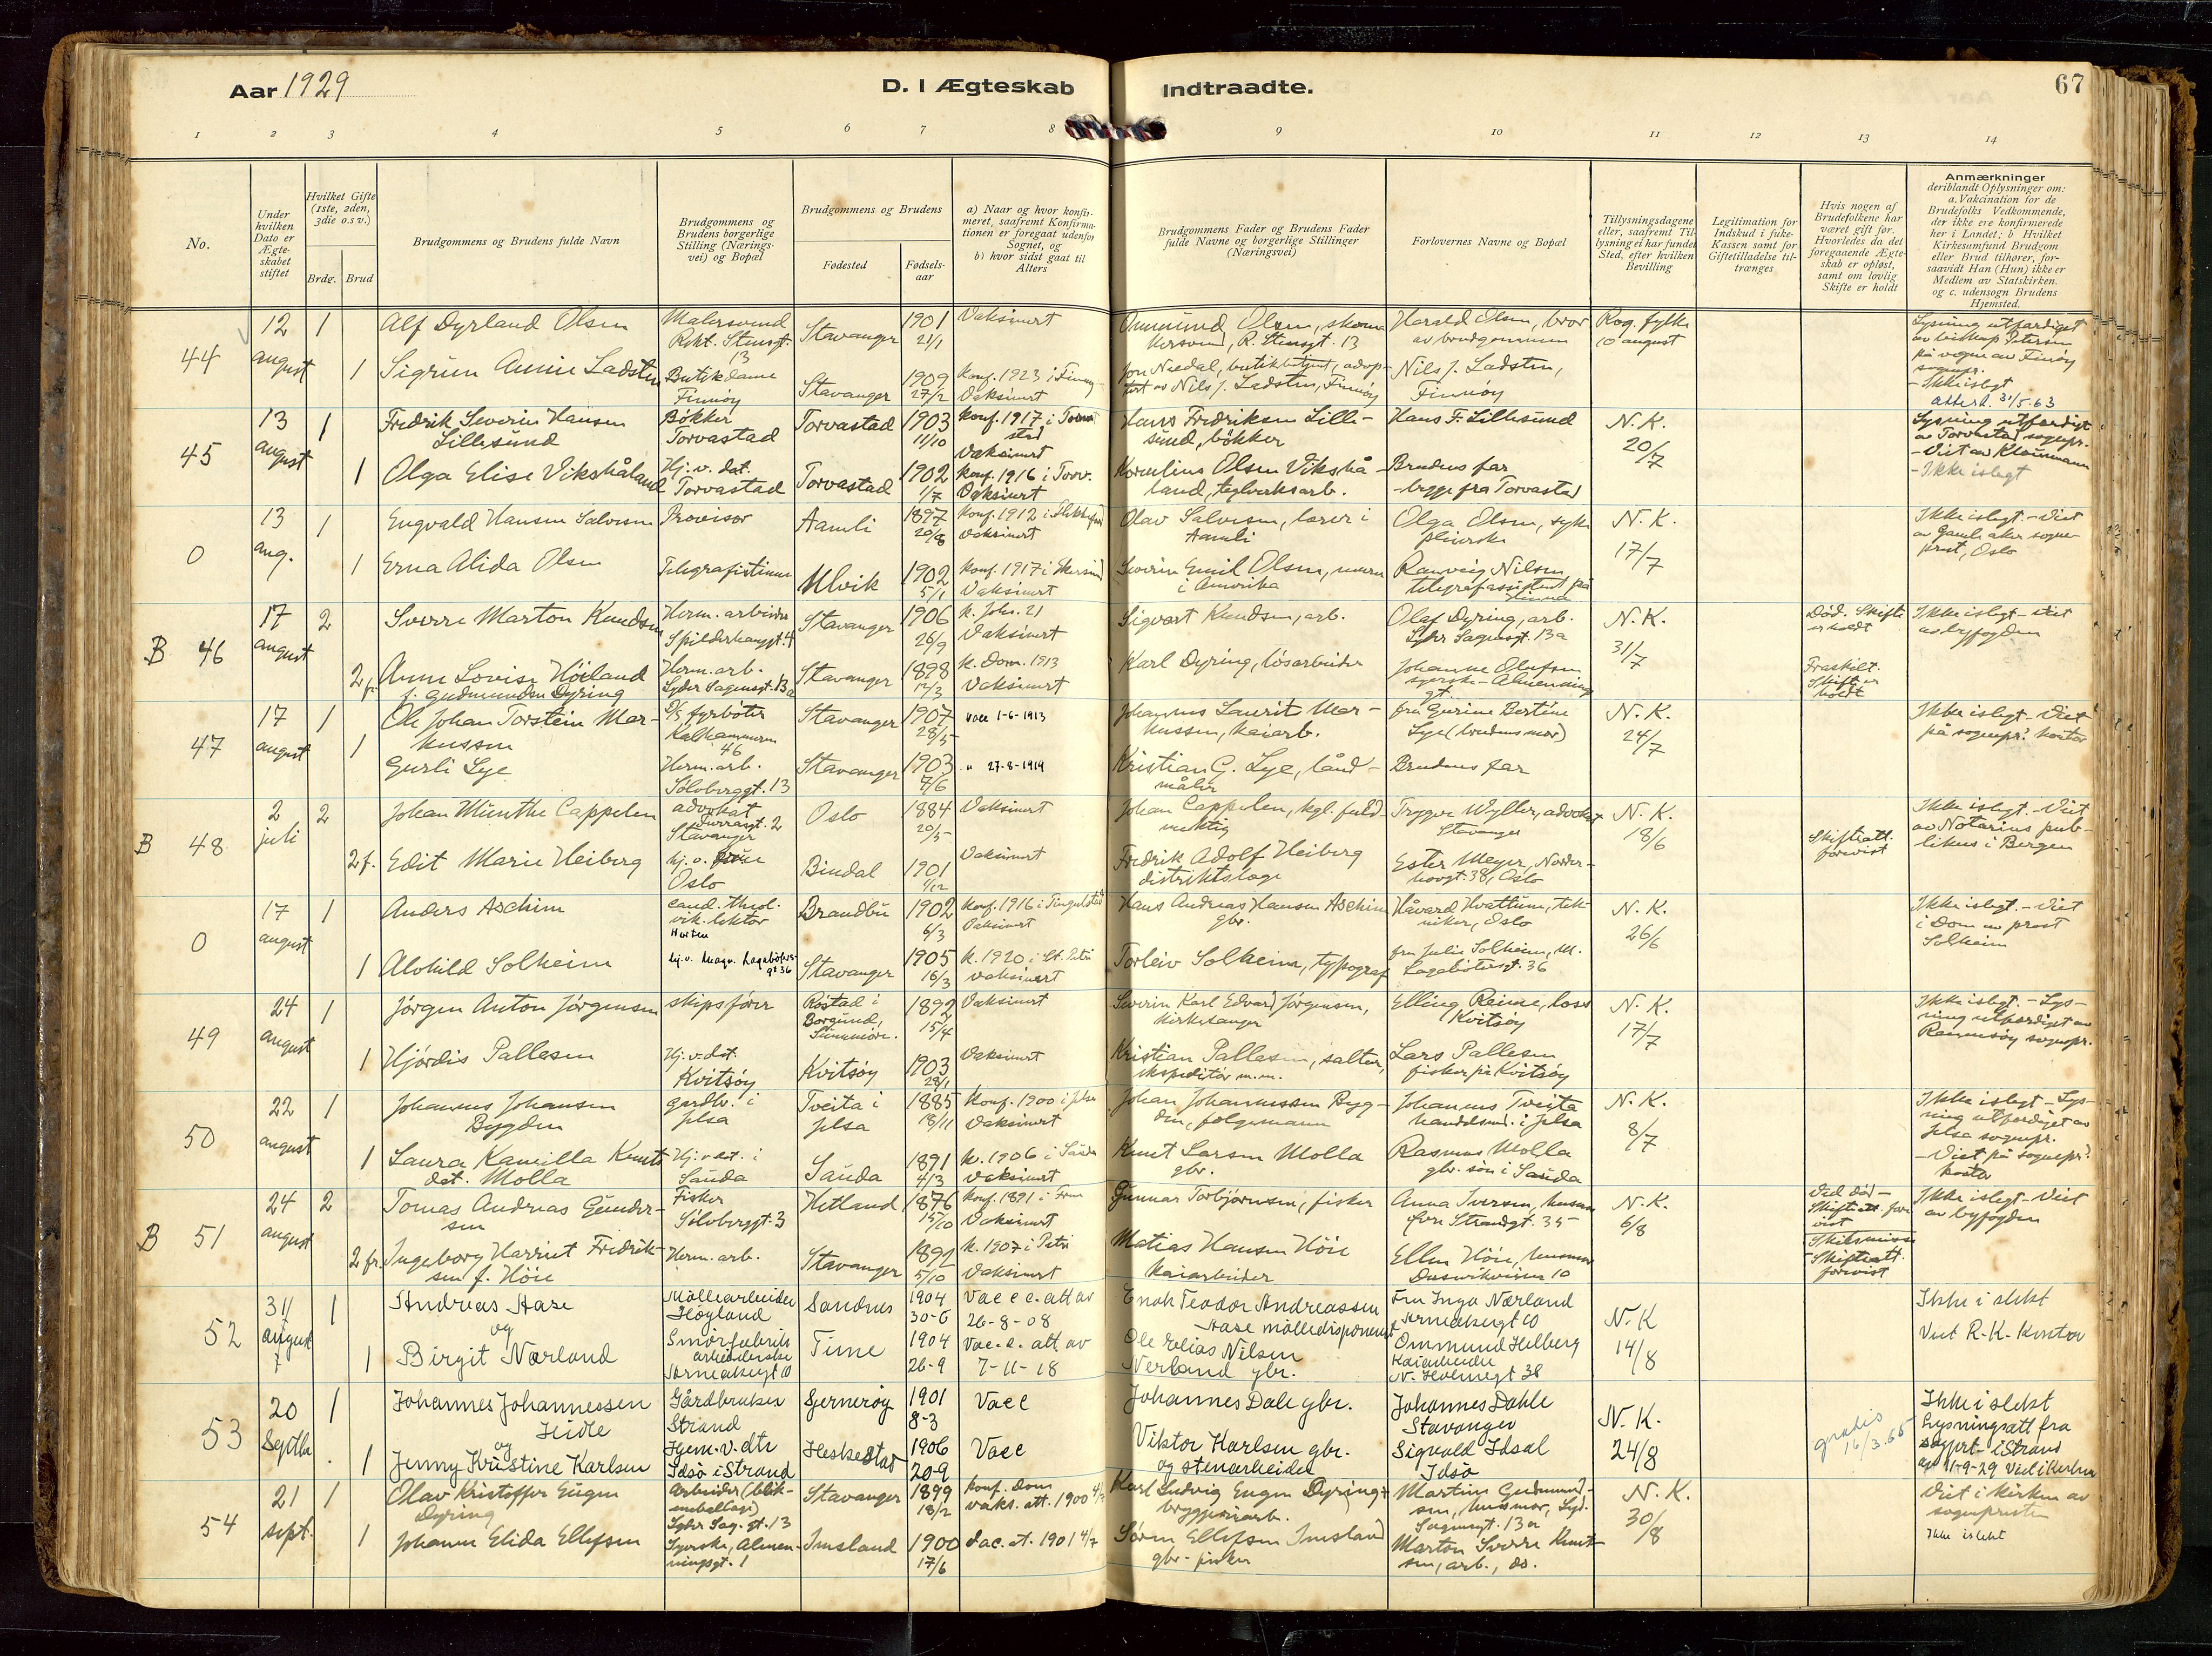 Aar 1929
D. I Ægteskab Indtraadte.
67
1 2 3 4 5 6 7 8 9 10 11 12 13 14
No.
Under hvilken Dato er Ægte-skabet stiftet
Hvilket Gifte (1ste, 2den, 3die o.s v.)
Brdg. Brud
Brudgommens og Brudens fulde Navn
Brudgommens og Brudens borgerlige Stilling (Nærings-vei) og Bopæl
Brudgommens og Brudens
Fødested
Fødsels-aar
a) Naar og hvor konfir-meret, saafremt Konfirma-tionen er foregaat udenfor Sognet, og
b) hvor sidst gaat til Alters
Brudgommens Fader og Brudens Fader fulde Navne og borgerlige Stillinger (Næringsvei)
Forlovernes Navne og Bopæl
Tillysningsdagene eller, saafremt Til-lysning ei har fundet Sted, efter hvilken Bevilling
Legitimation for Indskud i Enke-Kassen samt for Giftetilladelse til-trænges
Hvis nogen af Brudefolkene har været gift før. Hvorledes da det foregaaende Ægte-skab er opløst, samt om lovlig Skifte er holdt
Anmærkninger
deriblandt Oplysninger om: a. Vakcination for de Brudefolks Vedkommende, der ikke ere konfirmerede her i Landet; b Hvilket Kirkesamfund Brudgom eller Brud tilhører, for-saavidt Han (Hun) ikke er Medlem av Statskirken. og c. udensogn Brudens Hjemsted.
44 12 august 1 Alf Dyrland Olsen Malersvend Rekt. Stensgt. 13 Stavanger 1901 21/1 Vaksinert Ommund Olsen, skoma kersvend, R. Stensgt. 13 Harald Olsen, bror av brudgommen Rog. fylke 10 august
Lysning utfærdiget av biskop Petersen på vegne av Finnøy sognepr. - Ikke i slegt
attest. 31/5.63
1 Sigrun Annie Ladsten Butikdame Finnøy Stavanger 1909 27/2 Konf. 1923 i Finnøy Vaksinert Jon Nedal, butikbetjent, adop-tert av Nils J. Ladsten, Finnøy Nils J. Ladsten, Finnøy
45 13 august 1 Fredrik Severin Hansen Lillesund Bøkker Torvastad Torvastad 1903 11/10 Konf. 1917 i Torva stad Vaksinert Hans Fredriksen Lille-sund, bøkker Hans F. Lillesund N. K. 20/7
Lysning utfærdiget av Torvastad sognepr. - Viet av Klausmann - Ikke i slegt
1 Olga Elise Vikshåland Hj. v. dat. Torvastad Torvastad 1902 1/7 Konf. 1916 i Torv. Vaksinert Kornelius Olsen Vikshå-land, teglverksarb. Brudens far - begge fra Torvastad
0 13 aug. 1 Engvald Hansen Salvesen Provisor Aamli 1897 20/8 Konf. 1912 i Flekkefjord Vaksinert Olav Salvesen, lærer i Aamli Olga Olsen, syke pleierske N. K. 17/7
Ikke i slegt. - Viet av Gamle aker sogne-prest, Oslo
1 Erna Alida Olsen Telegrafistinne Ulvik 1902 5/1 Konf. 1917 i Egersund Vaksinert Severin Emil Olsen, murer i Amerika Ranveig Nilsen telegrafassistent på
B 46 17 august 2 Sverre Marton Knudsen Herm. arbeider Spilderhauggt. 4 Stavanger 1906 26/9 K. Joh. 21 Vaksinert Sigvart Knudsen, arb. Olaf Dyring, arb. Lyder Sagensgt. 13 a N. K. 31/7 Død. Skifte er holdt
Ikke i slegt - viet av byfogden
2 fr. Anne Lovise Høiland f. Gudmundsen Dyring Herm. arb. Lyder Sagensgt. 13 a Stavanger 1898 12/3 K. Dom. 1913 Vaksinert Karl Dyring, løsarbeider Johanne Olufsen syerske - Almenning gt. Fraskilt. Skifte er holdt
47 17 august 1 Ole Johan Torstein Mar-kussen D/s fyrbøter Kalhammeren 46 Stavanger 1907 28/5 vacc 1-6-1913 Johannes Laurits Mar-kussen, kaiarb. fru Gurine Bertine Lye (brudens mor) N. K. 24/7
Ikke i slegt - Viet på sognepr.s kontor
1 Gurli Lye Herm. arb. Sølvberggt. 13 Stavanger 1903 7/6 " 27-8-1914 Kristian G. Lye, land-måler Brudens far
B 48 2 juli 2 Johan Münthe Cappelen advokat Stavanger Oslo 1884 20/5 Vaksinert Johan Cappelen, kgl. fuld-mektig Trygve Wyller, advokat Stavanger N. K. 18/6 Skifteatt. forevist
Ikke i slegt. - Viet av Notarius pub-likus i Bergen
2 f. Edit Marie Heiberg Oslo Bindal 1901 1/12 Vaksinert Fredrik Adolf Heiberg distriktslæge Ester Meyer, Nordre-hovgt. 38, Oslo
0 17 august 1 Anders Aschim cand. theol. vik. lektor Horten Brandbu 1902 6/3 Konf. 1916 i Tingelstad Vaksinert Hans Andreas Hansen Aschim gbr. Håvard Hvattum, tek-niker, Oslo N. K. 26/6
Ikke i slegt. - Viet i Dom av prost Solheim
1 Alvhild Solheim hj. v. Magn. Lagabøtes-gt 36 Stavanger 1905 16/3 K. 1920 i St. Petri vaksinert Torleiv Solheim, typograf fru Julie Solheim, M. Lagabøtersgt. 36
49 24 august 1 Jørgen Anton Jørgensen skipsfører Røstad i Borgund, Sunnmøre. 1892 15/4 Vaksinert Severin Karl Edvard Jørgensen, kirkesanger Elling Reime, los Kvitsøy N. K. 17/7
Ikke i slegt. - Lys-ning utfærdiget av Rennesøy sognepr.
1 Hjørdis Pallesen Hj. v. dat. Kvitsøy Kvitsøy 1903 28/1 Vaksinert Kristian Pallesen, salter, ekspeditør m.m. Lars Pallesen fisker på Kvitsøy
50 22 august 1 Johannes Johansen Bygden gardbr. i Jelsa Tveita i Jelsa 1885 18/11 Konf. 1900 i Jelsa Vaksinert Johan Johannessen Byg-den, følgemann Johannes Tveita handelsm. i Jelsa N. K. 8/7
Ikke i slegt - Lys-ning utfærdiget av Jelsa sognepr. - Viet på sognepr.s kontor
1 Laura Kamilla Knuts dat. Molla Hj. v dat. i Sauda Sauda 1891 4/3 K. 1906 i Sauda Vaksinert Knut Larsen Molla gbr. Rasmus Molla gbr. søn i Sauda
B 51 24 august 2 Tomas Andreas Gunder-sen Fisker Sølvberggt. 3 Hetland 1876 15/10 Konf. 1891 i Frue Vaksinert Gunnar Torbjørnsen, fisker Anna Iversen, husmor Øvre Strandgt. 35 N. K. 6/8 Ved død - Skifteatt. fore vist
Ikke i slegt - Viet av byfogden
2 fr. Ingeborg Harriet Fredrik-sen f. Høie Herm. arb. Stavanger 1892 5/10 K. 1907 i Petri Vaksinert Matias Hansen Høie kaiarbeider Ellen Høie, husmor Dusavikveien 10 Skilsmisse Skifteatt. forevist
52 31/ august 7 1 Andreas Aase og Møllearbeider Høyland Sandnes 1904 30-6 Vacc. att av 26-8-08 Enok Teodor Andreassen Aase mølledisponent Fru Inga Nærland Arneakergt 10 N. K 14/8
Ikke i slekt Viet R-K-Kontor
1 Birgit Nærland Smørfabrik arbeiderske Arneakergt 10 Time 1904 26-9 Vac. e. att. av 7-11-18 Ole Elias Nilsen Nerland gbr. Ommund Helberg Kaiarbeider N. Holmegt 38
53 20 Septbr. 1 Johannes Johannessen Heidle og Gårdbruker Strand Sjernerøy 1901 8-3 Vacc Johannes Dale gbr. Johannes Dahle Stavanger N. K. 24/8
gratis 16/3.65
Ikke i slekt Lysningsatt fra sogprt - i Strand av 11-9-29 Viet i Kirken
1 Jenny Kristine Karlsen Hjem. v. dtr Idsø i Strand Heskestad 1906 20-9 Vacc Viktor Karlsen gbr. og stenarbeider Sigvald Idsal Idsø
54 21 sept. 1 Olav Kristoffer Eugen Dyring Arbeider (blik-emballage) Lyder Sag. gt. 13 Stavanger 1899 18/2 Konf. Dom vaks. att. 1900 Karl Ludvig Eugen Dyring bryggeriarb. Martin Gudmund-sen, husmor, Lyd. Sagensgt. 13 a N. K. 30/8
Viet i kirken av sognepresten
Ikke i slekt
1 Johanne Elida Ellefsen Syerske, Almen-ningsgt. 1 Imsland 1900 17/6 Vac. at. 1901 4/7 Søren Ellefsen Imsland gbr - fisker Marton Sverre Knut-sen, arb., do.